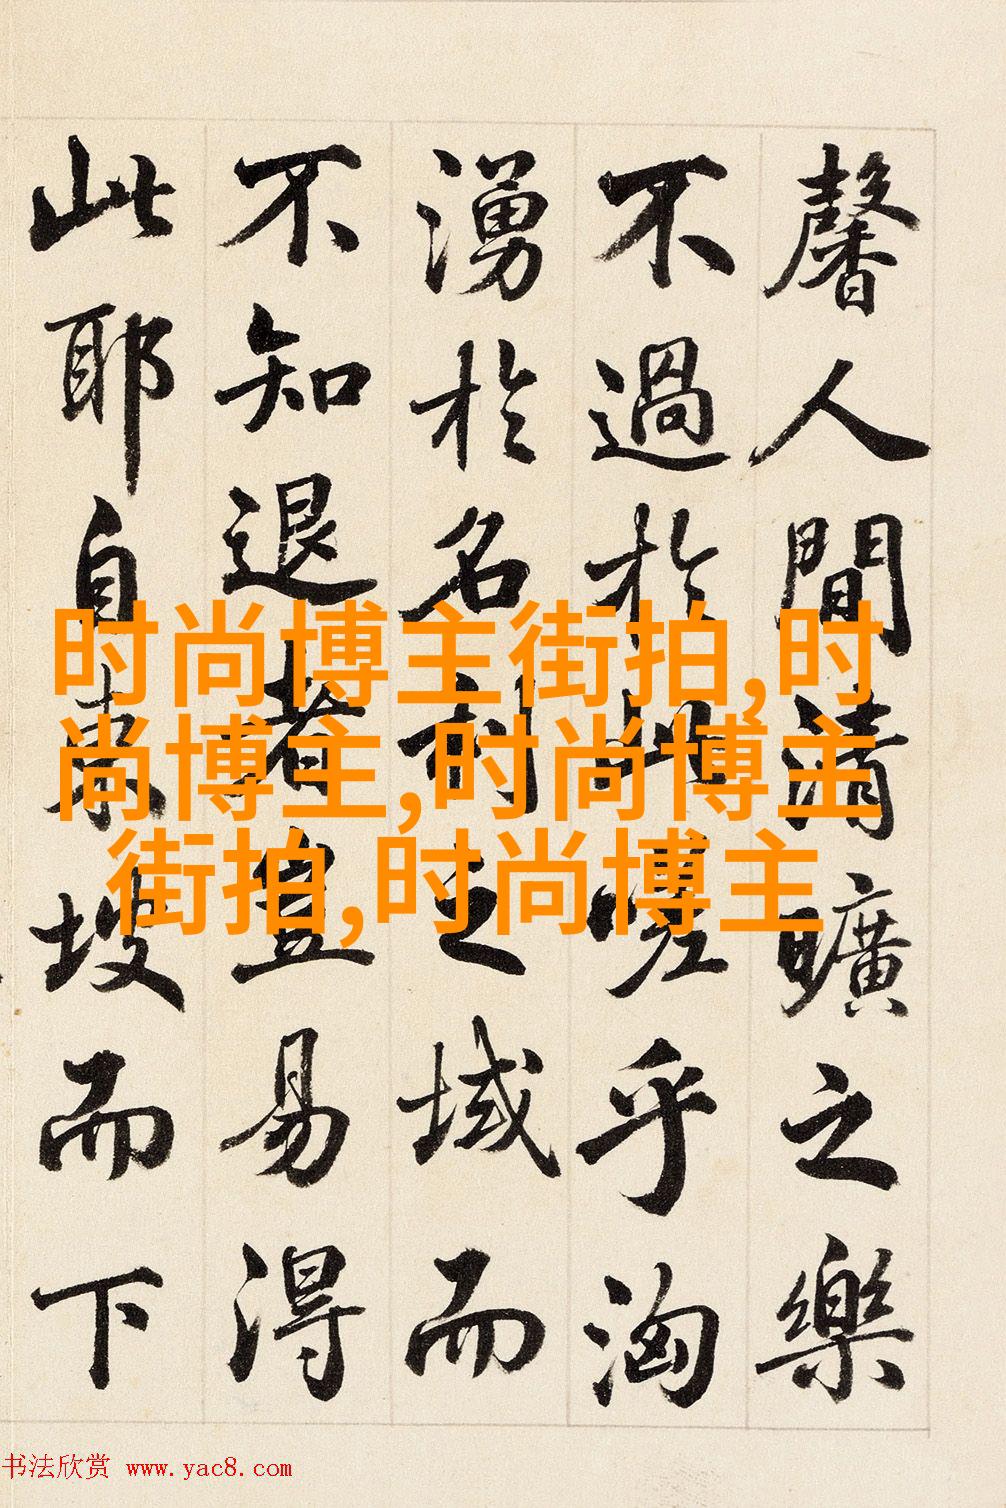 馨人間清曠之樂
不過於此嗟乎洶
湧於名利之域而
不知退者豈易得
此耶自東坡而下
时尚博主街拍,时
尚博主,时尚博主
街拍,时尚博主
书法欣赏 www.yac8.com